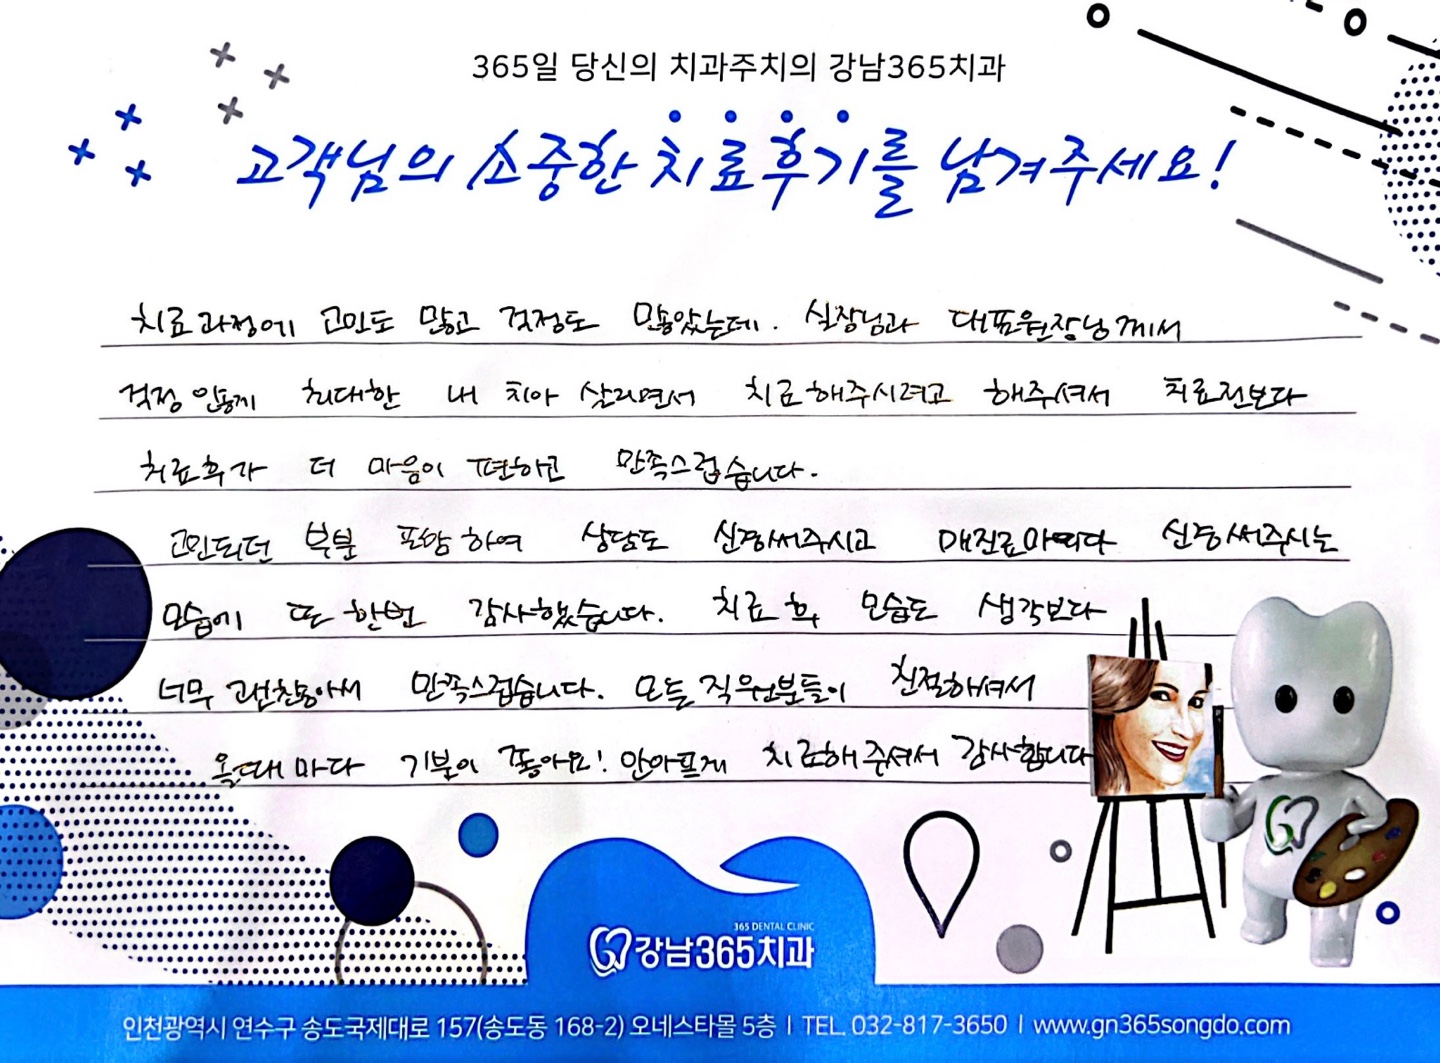 365일 당신의 치과주치의 강남365치과
고객님의 소중한 치료후기를 남겨주세요!
치료과정에 고민도 많고 걱정도 많았는데. 실장님과 대표원장님께서
걱정 않게 최대한 내 치아 살리면서 치료해주시려고 해주셔서 치료전보다
치료후가 더 마음이 편하고 만족스럽습니다.
고민되던 부분 포함하여 상담도 신경써주시고 매진료마다 신경써주시는
모습에 또 한번 감사했습니다. 치료 후 모습도 생각보다
너무 괜찮아서 만족스럽습니다. 모든 직원분들이 친절하셔서
올때마다 기분이 좋아요! 안아프게 치료해주셔서 감사합니다
365 DENTAL CLINIC
강남365치과
인천광역시 연수구 송도국제대로 157(송도동 168-2) 오네스타몰 5층 | TEL. 032-817-3650 | www.gn365songdo.com